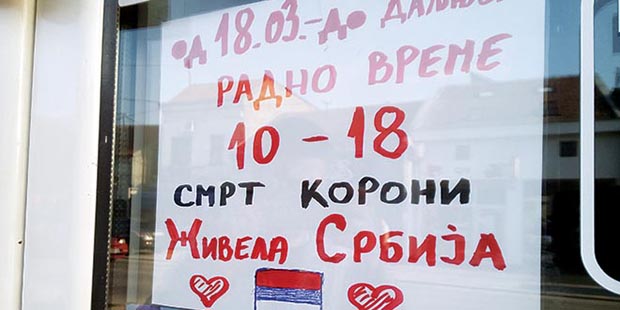 од 18.03.-до даљњег
РАДНО ВРЕМЕ
10-18
СМРТ КОРОНИ
ЖИВЕЛА СРБИЈА